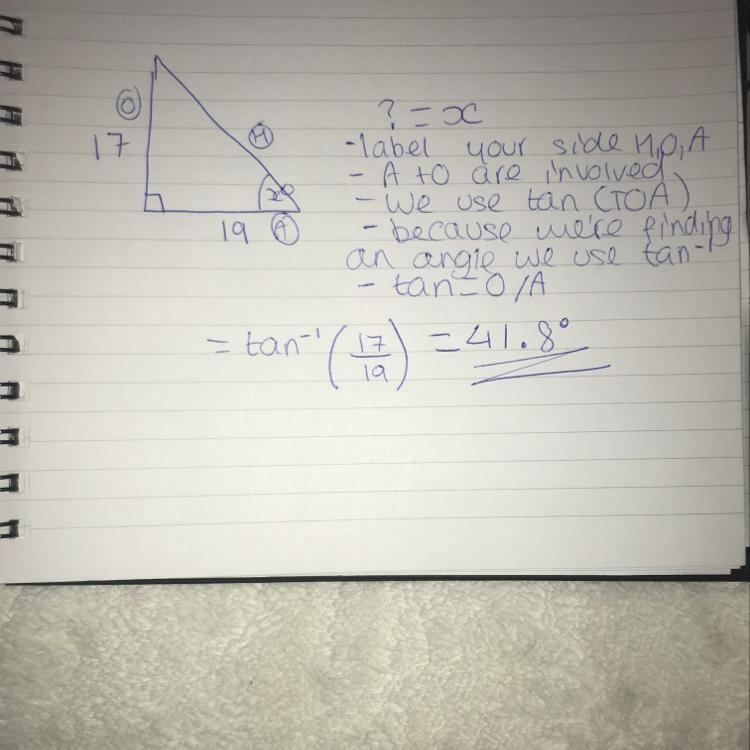 O
17
H
x°
19 A
? = x
- label your side H, O, A
- A + O are involved
- We use tan (TOA)
- because we're finding
an angle we use tan⁻¹
- tan = O/A
= tan⁻¹ (17/19) = 41.8°